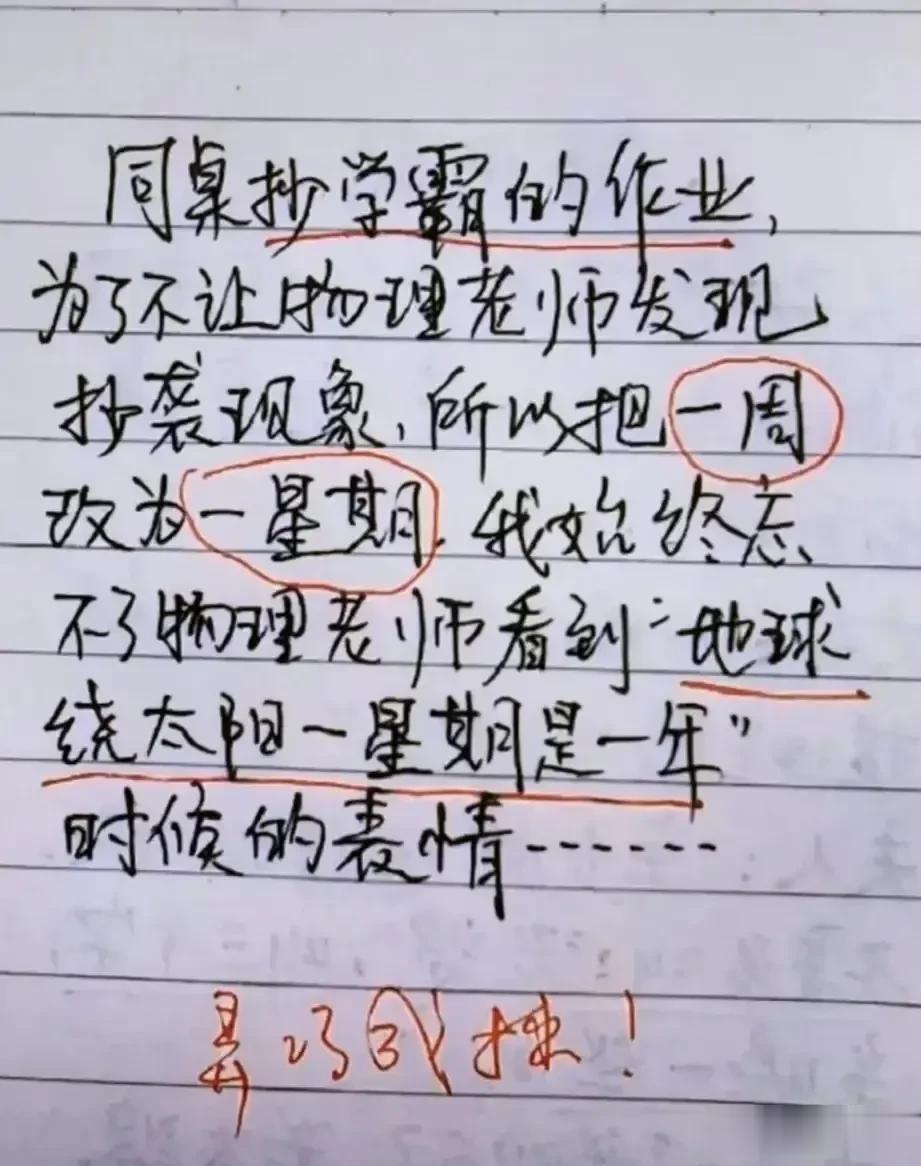 同桌抄学霸的作业,
为了不让物理老师发现
抄袭现象,所以把一周
改为一星期,我始终忘
不了物理老师看到“地球
绕太阳一星期是一年”
时候的表情……
弄巧成拙!